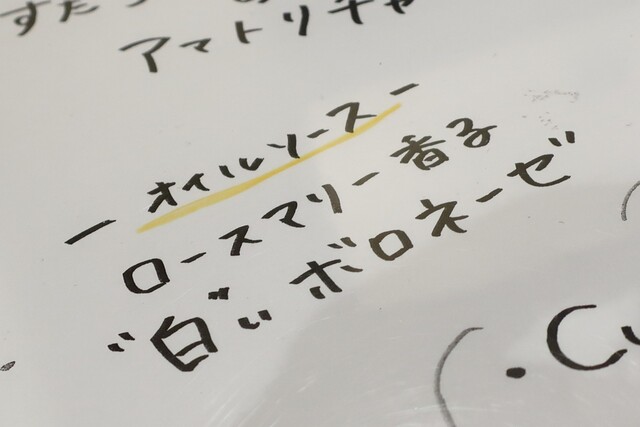 アマトリチャ
— オイルソース —
ロースマリー香る
"白" ボロネーゼ